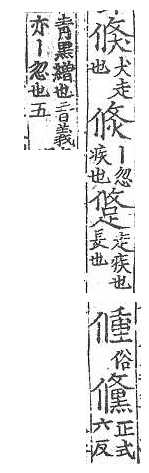 倏犬走也倐丨忽疾也走疾也長也俗儵正式六反
青黑繒也音義亦丨忽也五